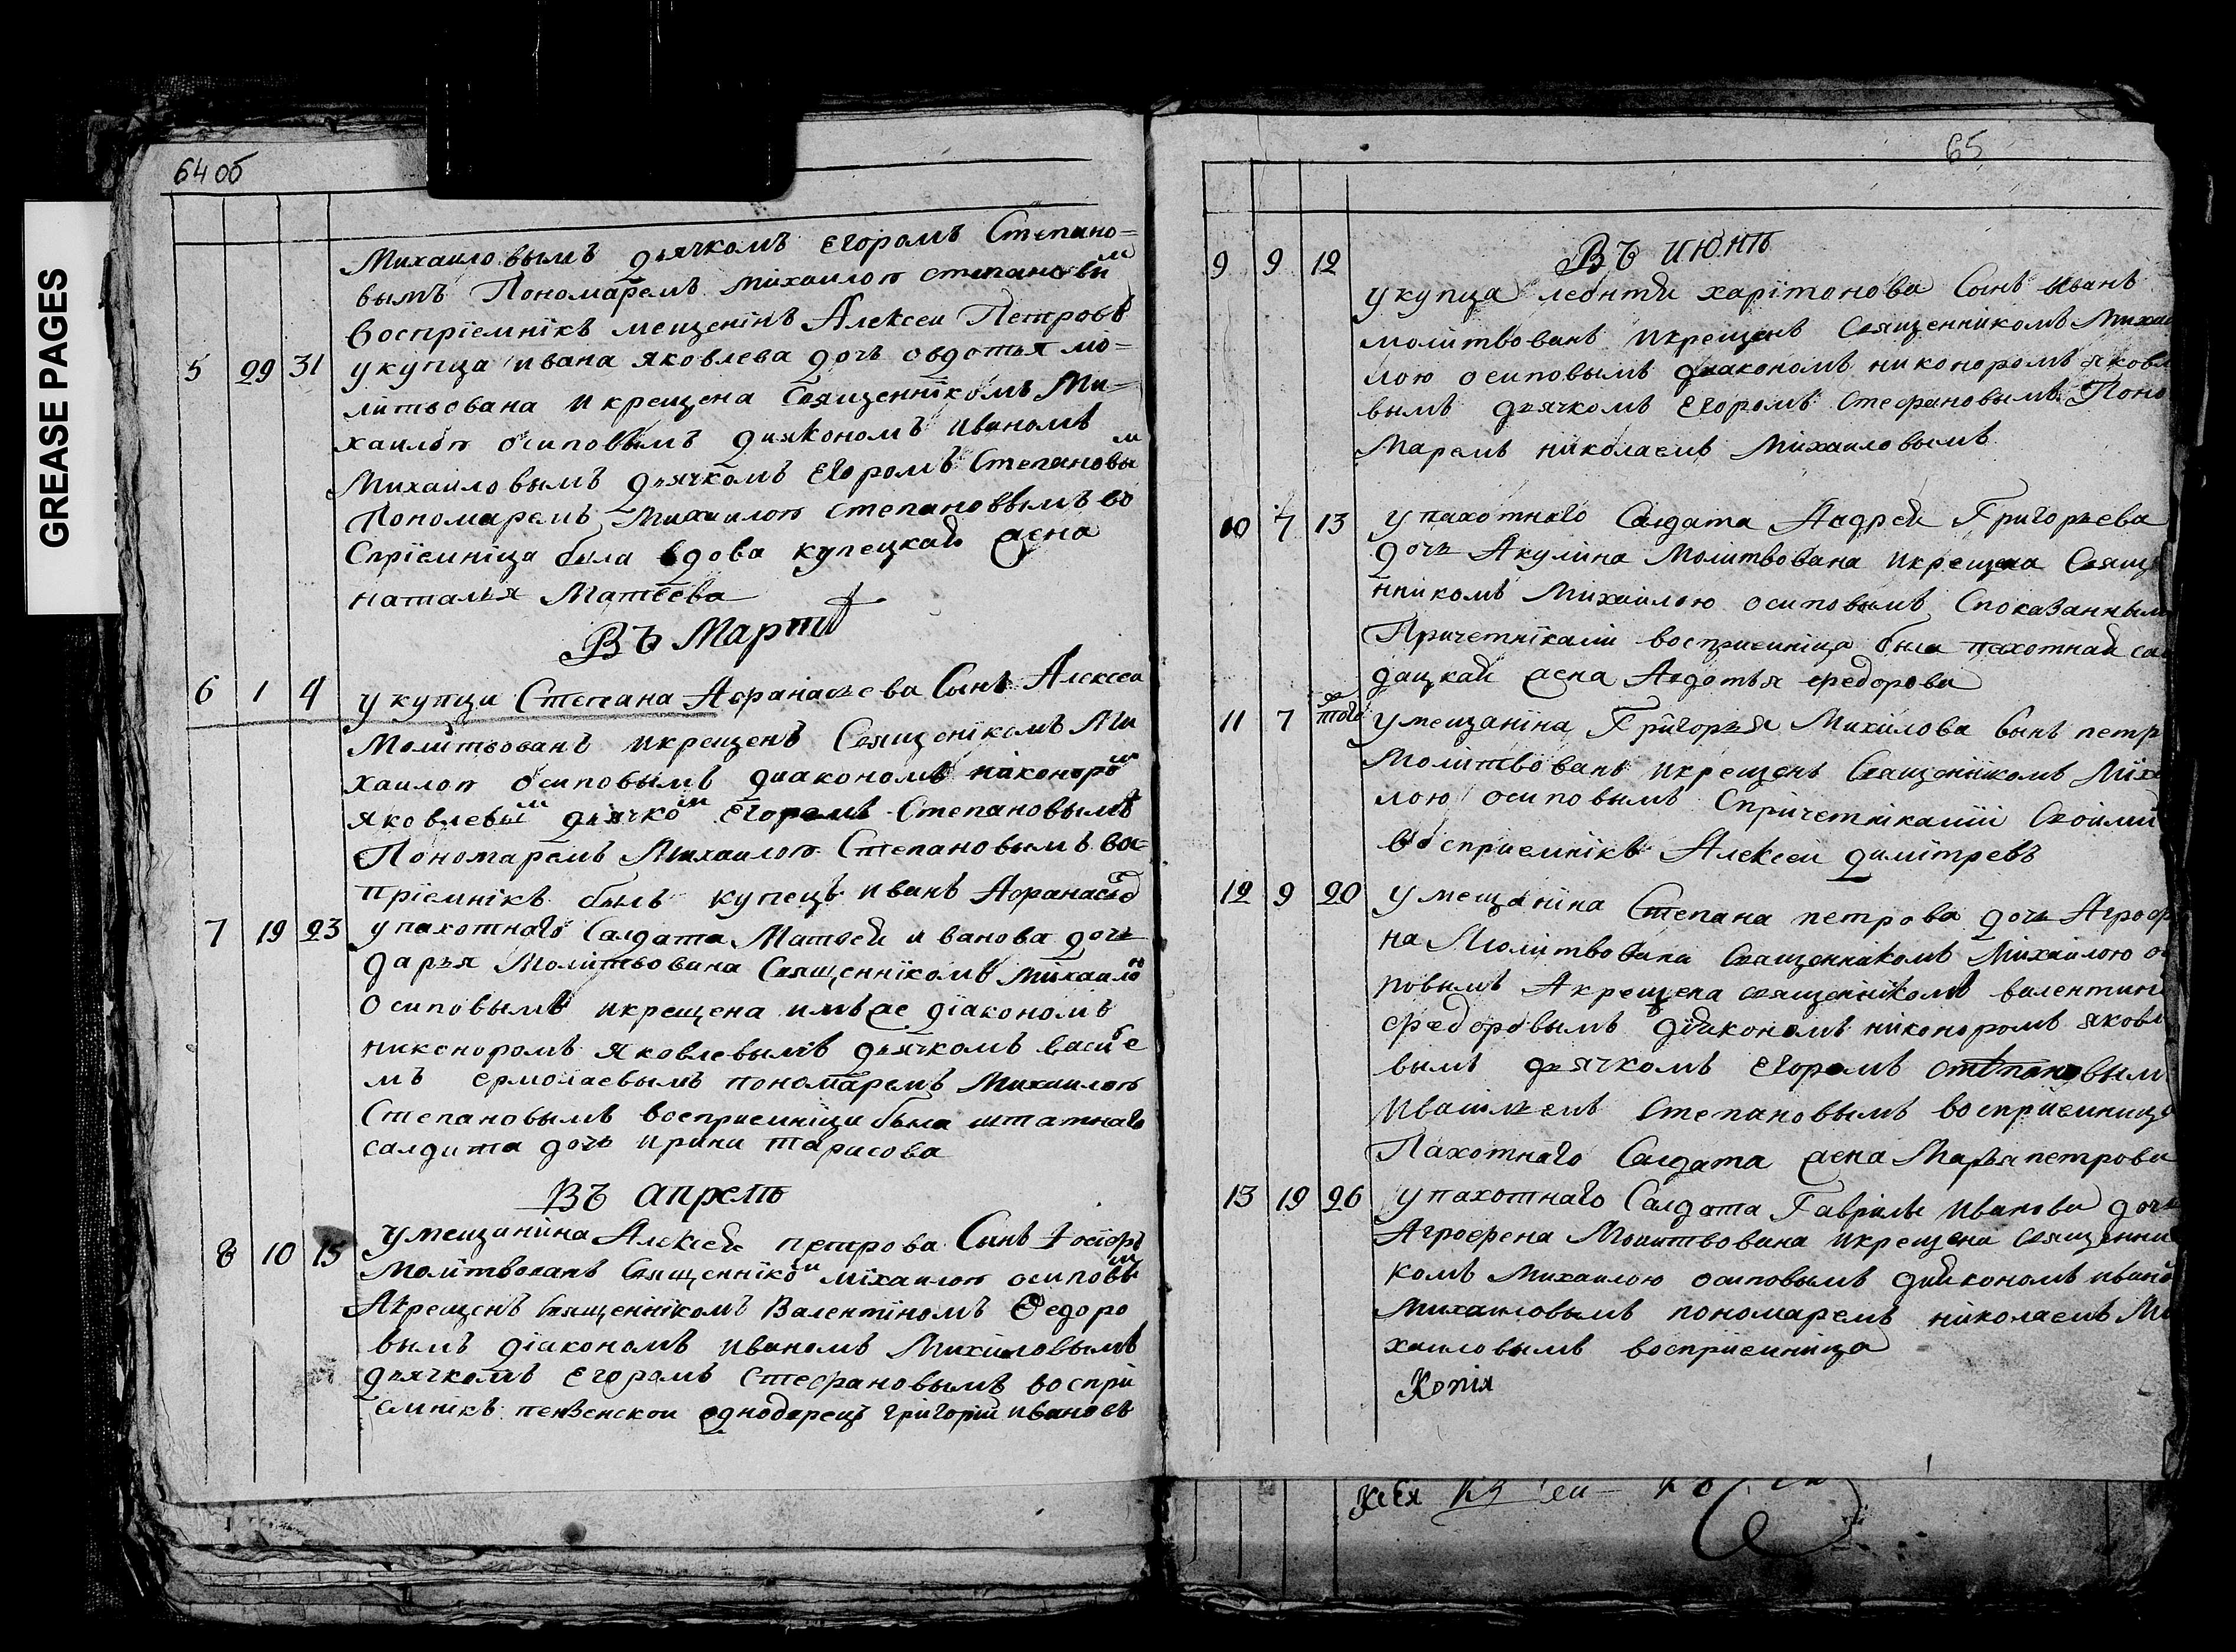 GREASE PAGES
64 об
Михаиловымъ дьячкомъ Егоромъ Степано=
вымъ Пономаремъ Михаилом Степановым
Воспрїемнікъ мещенінъ Алексеи Петровъ
5 29 31 у купца Ивана Яковлева дочь овдотья мо=
литвована и крещена Священнїкомъ Ми=
хаилом Осиповымъ диякономъ Иваномъ
Михаиловымъ дьячкомъ Егоромъ Степановым
Пономаремъ Михаилом Степановымъ во
Спрїемнїца была вдова купецкая жена
наталья Матвѣева
Въ Мартѣ
6 1 4 у купца Степана Афанасьева Сынъ Алексеи
Молитвованъ и крещенъ Священїкомъ Ми
хаилом Осиповымъ диакономъ никоноромъ
Яковлевым дьячком Егоромъ Степановымъ
Пономаремъ Михаилом Степановымъ вос=
прїемнїкъ былъ купецъ иванъ Афанасьев
7 19 23 у пахотнаго Салдата Матвеи иванова дочь
дарья Молитвована Священнїкомъ Михаилою
Осиповымъ и крещена имъ же дїакономъ
никоноромъ Яковлевымъ дьячкомъ василье
мъ ермолаевымъ пономаремъ Михаилом
Степановымъ восприемнїца была штатнаго
салдата дочь ирина тарасова
Въ апрелѣ
8 10 15 У мещанина Алексеи петрова Сынъ
Молитвованъ Священнїком мїхаилом осиповым
А крещенъ Священнїкомъ Валентїномъ Ѳедоро
вымъ дїакономъ иваномъ Михаиловымъ
дьячкомъ Егоромъ Стефановымъ воспри
емнїкъ пензенскои однодворецъ григорїи ивановъ
65
Въ июнѣ
9 9 12
у купца леонтия харїтонова Сынъ иванъ
молитвованъ и крещенъ Священникомъ Михаи
лою осиповымъ диакономъ никоноромъ яковл
вымъ дьячкомъ Егоромъ Стефановымъ Поно
Маремъ николаемъ Михаиловымъ
10 7 13 у пахотнаго Салдата Андреи Григорьева
дочь Акулина Молитвована и крещена Свяще
нникомъ Михаилою осиповымъ С показанными
Причетнїками восприемнїца была пахотнаи сал
дацкаи жена Авдотья федорова
11 7 того у мещанїна Григорья Михаилова сынъ петр
Молитвованъ и крещенъ Священїкомъ Миха
лою осиповымъ С причетнїкамїи Своими
восприемнїкъ Алексеи димїтревъ
12 9 20 У мещанїна Степана петрова дочь Агроф
на Молитвована Священнїкомъ Михаилою о
повымъ А крещена священїкомъ валентин
федоровымъ дїакономъ никоноромъ яковл
вымъ дьячкомъ Егоромъ степановым
Степановымъ восприемница
Пахотнаго Салдата жена Марья петрова
13 19 26 у пахотнаго Салдата Гаврилы Иванова дочь
Агрофена Молитвована и крещена священни
комъ Михаилою осиповымъ дїякономъ ивано
Михаиловымъ пономаремъ николаемъ Ми
хаиловымъ восприемница
Копїя